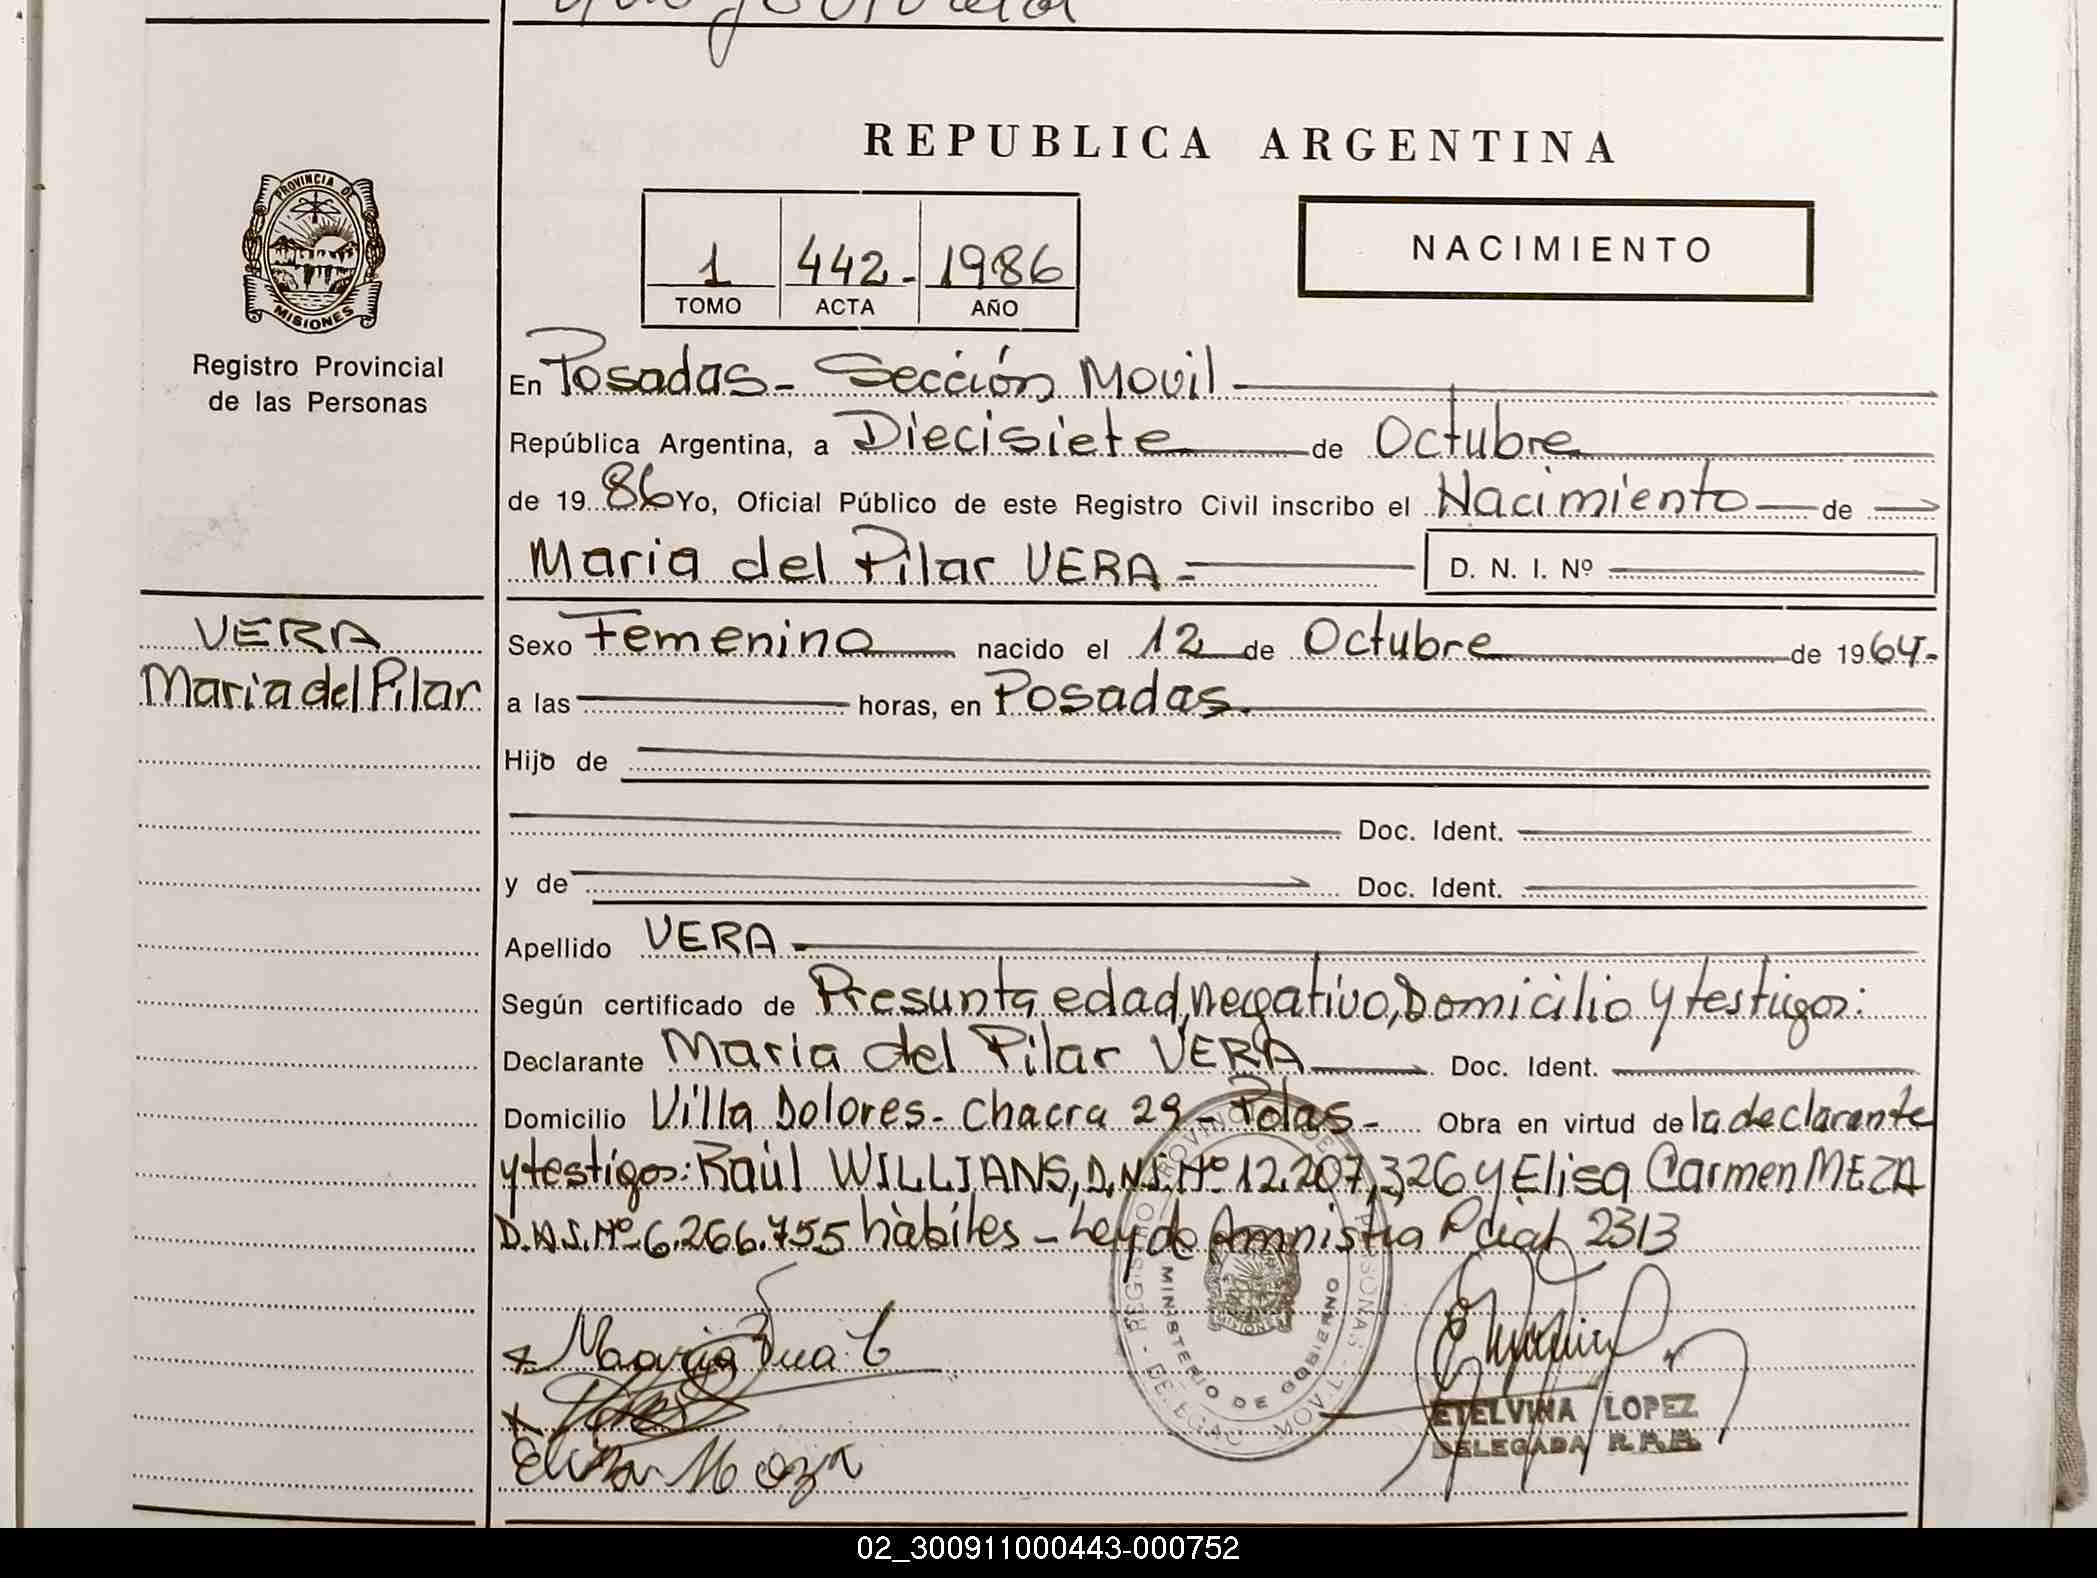 REPUBLICA ARGENTINA
PROVINCIA DE
MISIONES
Registro Provincial
de las Personas
1 442- 1986
TOMO ACTA AÑO
NACIMIENTO
En Posadas- Sección Movil
República Argentina, a Diecisiete de Octubre
de 19 86 Yo, Oficial Público de este Registro Civil inscribo el Nacimiento de
Maria del Pilar VERA - D. N. I. Nº
VERA
Maria del Pilar
Sexo Femenino nacido el 12 de Octubre de 1964-
a las horas, en Posadas.
Hijo de
Doc. Ident.
y de Doc. Ident.
Apellido VERA
Según certificado de Presunta edad, negativo, Domicilio y testigos:
Declarante Maria del Pilar VERA Doc. Ident.
Domicilio Villa Dolores- Chacra 29 - Pdas- Obra en virtud de la declarante
y testigos: Raúl WILLIANS, D.N.I. Nº 12.207,326 y Elisa Carmen MEZA
D.N.I. Nº 6.266.755 hàbiles - Ley de Amnistia Pcial 2313
REGISTRO PROVINCIAL DE PERSONAS
MINISTERIO DE GOBIERNO
MISIONES
Elisa Meza
ETELVINA LOPEZ
DELEGADA
02_300911000443-000752